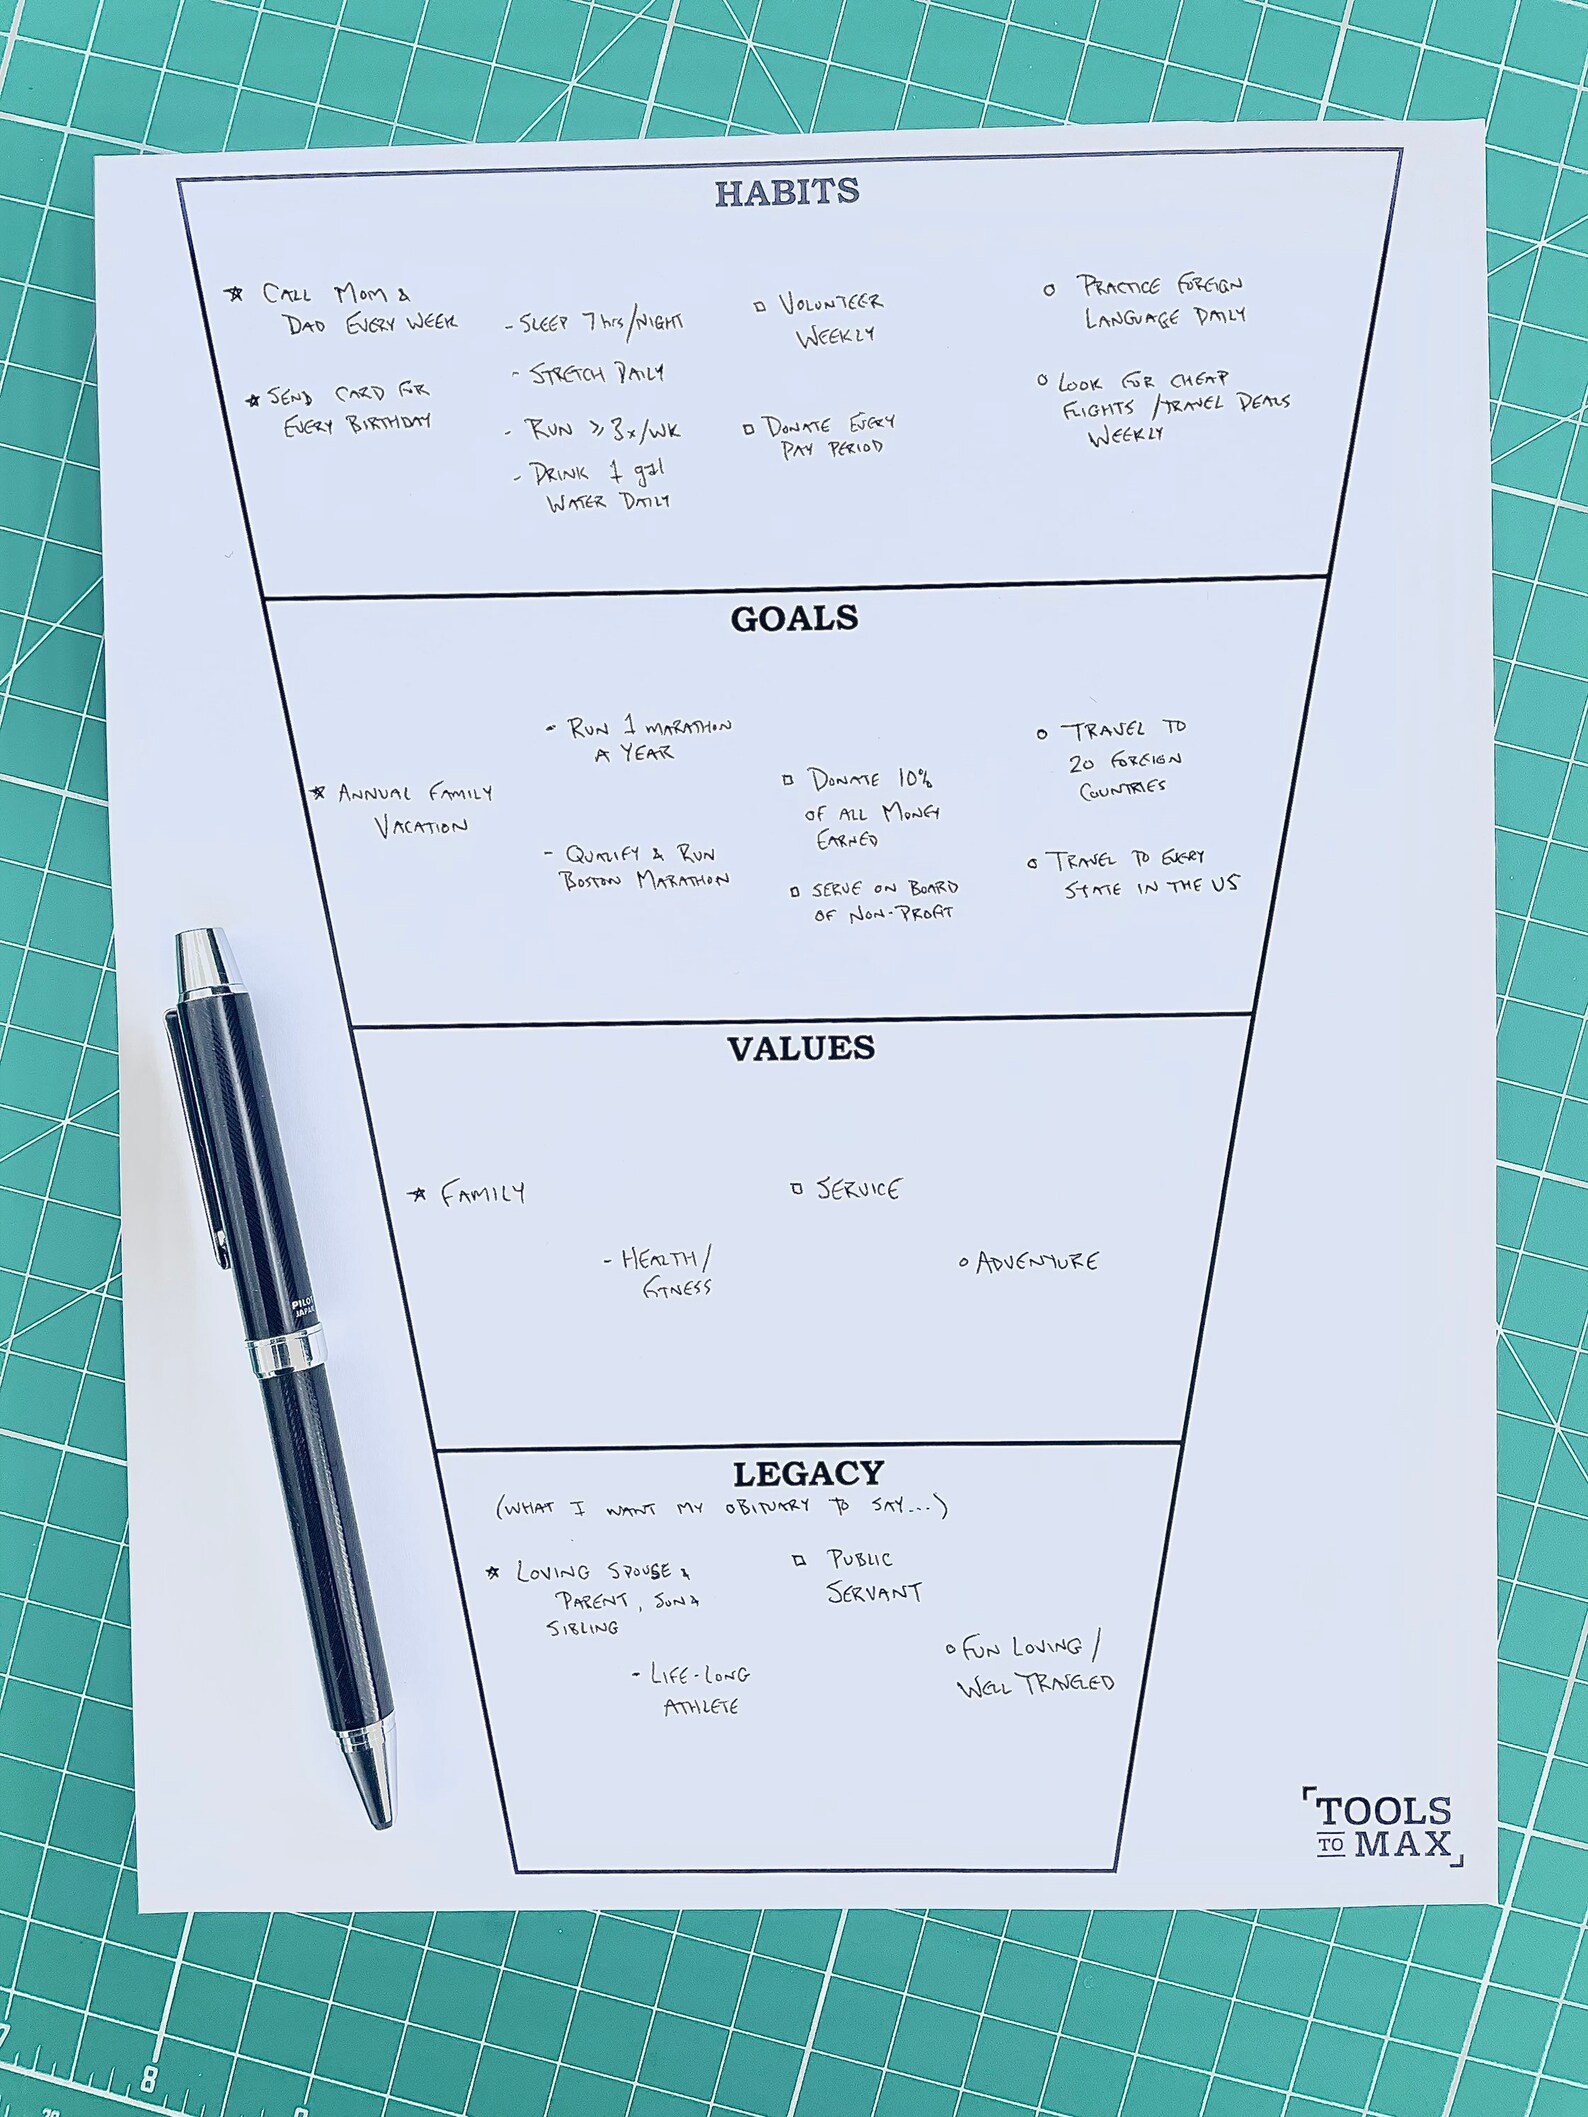 HABITS
☆ CALL MOM &
DAD EVERY WEEK
☆ SEND CARD FOR
EVERY BIRTHDAY
- SLEEP 7 hrs/NIGHT
- STRETCH DAILY
- RUN ≥ 3x/WK
- DRINK 1 gal
WATER DAILY
□ VOLUNTEER
WEEKLY
□ DONATE EVERY
PAY PERIOD
○ PRACTICE FOREIGN
LANGUAGE DAILY
○ LOOK FOR CHEAP
FLIGHTS / TRAVEL DEALS
WEEKLY
GOALS
☆ ANNUAL FAMILY
VACATION
- RUN 1 MARATHON
A YEAR
- QUALIFY & RUN
BOSTON MARATHON
□ DONATE 10%
OF ALL MONEY
EARNED
□ SERVE ON BOARD
OF NON-PROFIT
○ TRAVEL TO
20 FOREIGN
COUNTRIES
○ TRAVEL TO EVERY
STATE IN THE US
VALUES
☆ FAMILY
- HEALTH/
FITNESS
□ SERVICE
○ ADVENTURE
LEGACY
(WHAT I WANT MY OBITUARY TO SAY...)
☆ LOVING SPOUSE &
PARENT, SON &
SIBLING
- LIFE-LONG
ATHLETE
□ PUBLIC
SERVANT
○ FUN LOVING /
WELL TRAVELED
TOOLS
TO MAX
PILOT
JAPAN
8